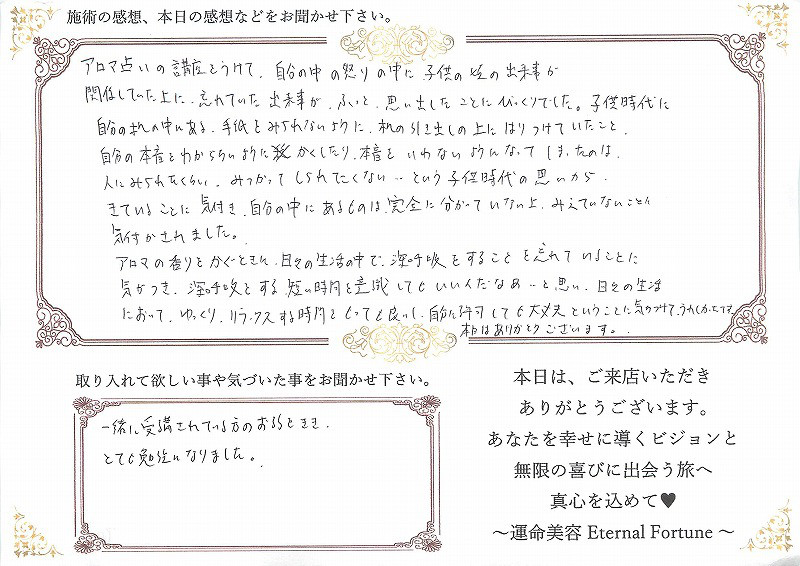 施術の感想、本日の感想などをお聞かせ下さい。
アロマ占いの講座をうけて、自分の中の怒りの中に子供の頃の出来事が
関係していた上に、忘れていた出来事が、ふいと、思い出したことにびっくりでした。子供時代に
自分の机の中にある、手紙をみられないように、机の引き出しの上にはりつけていたこと、
自分の本音をわからないようにかくしたり、本音をいわないようになってしまったのは、
人にみられたくない、みつかってしられたくない…という子供時代の思いから
きていることに気付き、自分の中にあるものは、完全に分かっていない上、みえていないことに
気付かされました。
アロマの香りをかぐときに、日々の生活の中で、深呼吸をすることを忘れていることに
気がつき、深呼吸をする短い時間を意識してもいいんだなあ…と思い、日々の生活
において、ゆっくり、リラックスする時間をとっても良いし、自分に許可しても大丈夫ということに気づけて、うれしかったです
本日はありがとうございます。
取り入れて欲しい事や気づいた事をお聞かせ下さい。
一緒に受講されている方のお話をきき、
とても勉強になりました。
本日は、ご来店いただき
ありがとうございます。
あなたを幸せに導くビジョンと
無限の喜びに出会う旅へ
真心を込めて♥
～運命美容 Eternal Fortune～